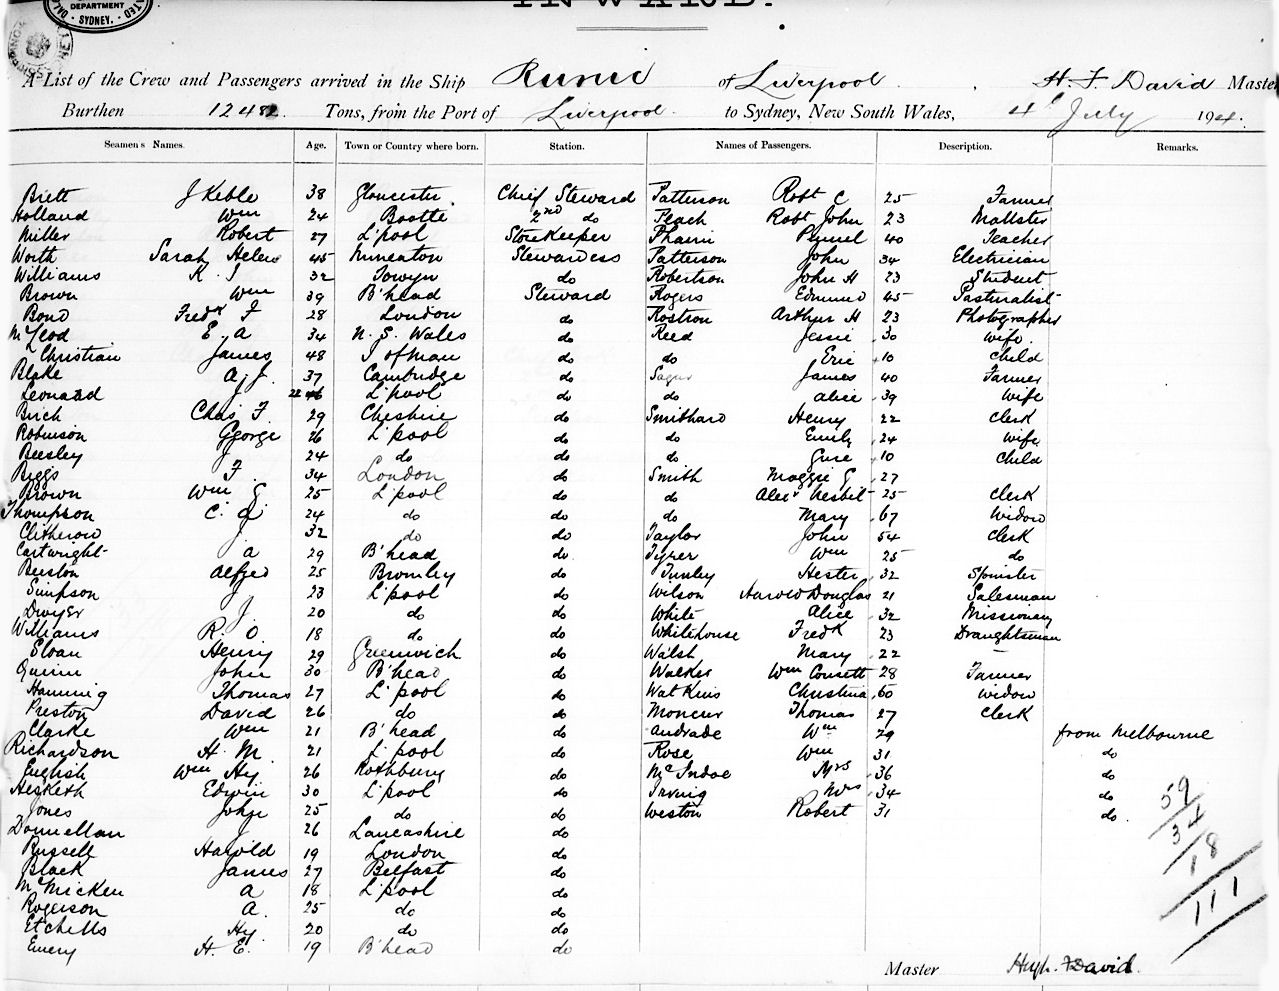 DEPARTMENT
SYDNEY.
INWARD.
A List of the Crew and Passengers arrived in the Ship Runic of Liverpool, H. F. David Master
Burthen 12482 Tons, from the Port of Liverpool to Sydney, New South Wales, 4th July 1904.
Seamen's Names. Age. Town or Country where born. Station. Names of Passengers. Description. Remarks.
Brett J Keble 38 Gloucester Chief Steward Patterson Robt C 25 Farmer
Holland Wm 24 Bootle 2nd do Robt John 23 Maltster
Miller Robert 27 L'pool Storekeeper 40 Teacher
Worth Sarah Helen 45 Nuneaton Stewardess Patterson John 34 Electrician
Williams R. J 32 Towyn do Robertson John H 23 Student
Brown Wm 39 B'head Steward Rogers Edmund 45 Pasturalist
Bond Fredk F 28 London do Rostron Arthur H 23 Photographer
McLeod E. A 34 N. S. Wales do Reed Jessie 30 Wife
Christian James 48 I of Man do do Eric 10 Child
Blake A. J. 37 Cambridge do Sagur James 40 Farmer
Leonard J L'pool do do Alice 39 Wife
Birch Chas F. 29 Cheshire do Smithard Henry 22 Clerk
Robinson George 26 L'pool do do Emily 24 Wife
Beesley J 24 do do do 10 Child
Biggs F. 34 London do Smith Maggie G 27
Brown Wm G 25 L'pool do do Alexr Nesbit 25 Clerk
Thompson C. A 24 do do do Mary 67 Widow
Clitherow J 32 do do Taylor John 54 Clerk
Cartwright A 29 B'head do Tyrer Wm 25 do
Beeston Alfred 25 Bromley do Tunley Hester 32 Spinster
Simpson J 23 L'pool do Wilson Harold Douglas 21 Salesman
Dwyer J. 20 do do White Alice 32 Missionary
Williams R. O. 18 do do Whitehouse Fredk 23 Draughtsman
Sloan Henry 29 Greenwich do Walsh Mary 22 —
Quinn John 30 B'head do Walker Wm 28 Farmer
Hanning Thomas 27 L'pool do Watkins Christina 60 Widow
Preston David 26 do do Moncur Thomas 27 Clerk
Clarke Wm 21 B'head do Andrade Wm 29 from Melbourne
Richardson H. M. 21 L'pool do Rose Wm 31 do
English Wm Hy 26 Rothbury do McIndoe Mrs 36 do
Hesketh Edwin 30 L'pool do Irving Mrs 34 do
Jones John 25 do do Weston Robert 31 do.
Donnellan J 26 Lancashire do
Russell Harold 19 London do
Black James 27 Belfast do
McMicken A 18 L'pool do
Rogerson A. 25 do do
Etchells Hy 20 do do
Emery H. E. 19 B'head do
59
34
18
111
Master Hugh. F David.